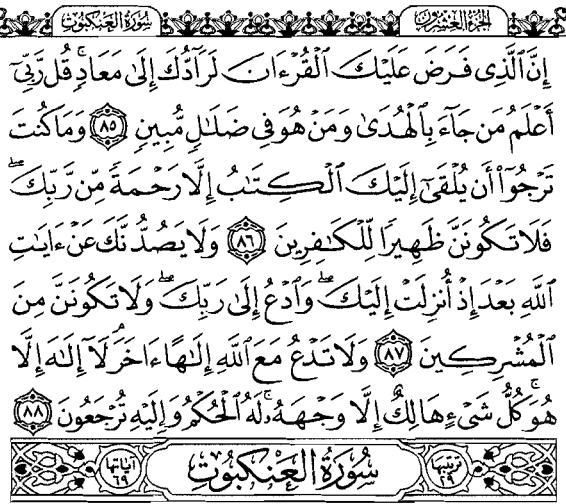 الجزء العشرون سورة العنكبوت
إِنَّ ٱلَّذِى فَرَضَ عَلَيْكَ ٱلْقُرْءَانَ لَرَآدُّكَ إِلَىٰ مَعَادٍۚ قُل رَّبِّىٓ
أَعْلَمُ مَن جَآءَ بِٱلْهُدَىٰ وَمَنْ هُوَ فِى ضَلَـٰلٍ مُّبِينٍ ٨٥ وَمَا كُنتَ
تَرْجُوٓا۟ أَن يُلْقَىٰٓ إِلَيْكَ ٱلْكِتَـٰبُ إِلَّا رَحْمَةً مِّن رَّبِّكَۖ
فَلَا تَكُونَنَّ ظَهِيرًا لِّلْكَـٰفِرِينَ ٨٦ وَلَا يَصُدُّنَّكَ عَنْ ءَايَـٰتِ
ٱللَّهِ بَعْدَ إِذْ أُنزِلَتْ إِلَيْكَۖ وَٱدْعُ إِلَىٰ رَبِّكَۖ وَلَا تَكُونَنَّ مِنَ
ٱلْمُشْرِكِينَ ٨٧ وَلَا تَدْعُ مَعَ ٱللَّهِ إِلَـٰهًا ءَاخَرَۘ لَآ إِلَـٰهَ إِلَّا
هُوَۚ كُلُّ شَىْءٍ هَالِكٌ إِلَّا وَجْهَهُۥۚ لَهُ ٱلْحُكْمُ وَإِلَيْهِ تُرْجَعُونَ ٨٨
ترتيبها ٢٩ سُورَةُ العَنكَبُوتِ آياتها ٦٩